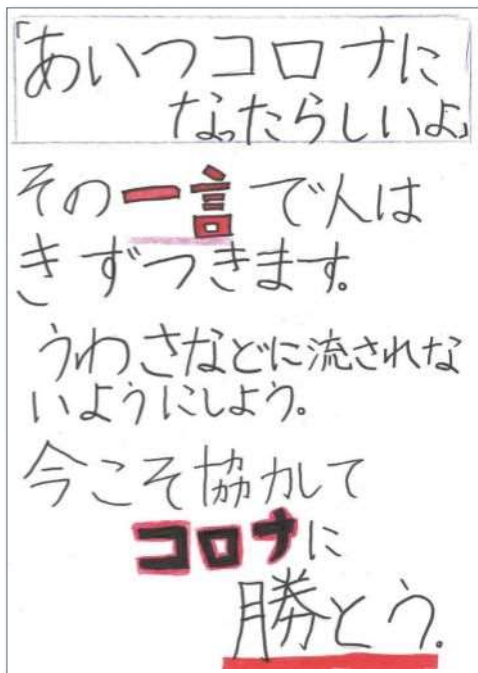 「あいつコロナに
なったらしいよ」
その一言で人は
きずつきます。
うわさなどに流されな
いようにしよう。
今こそ協力して
コロナに
勝とう。